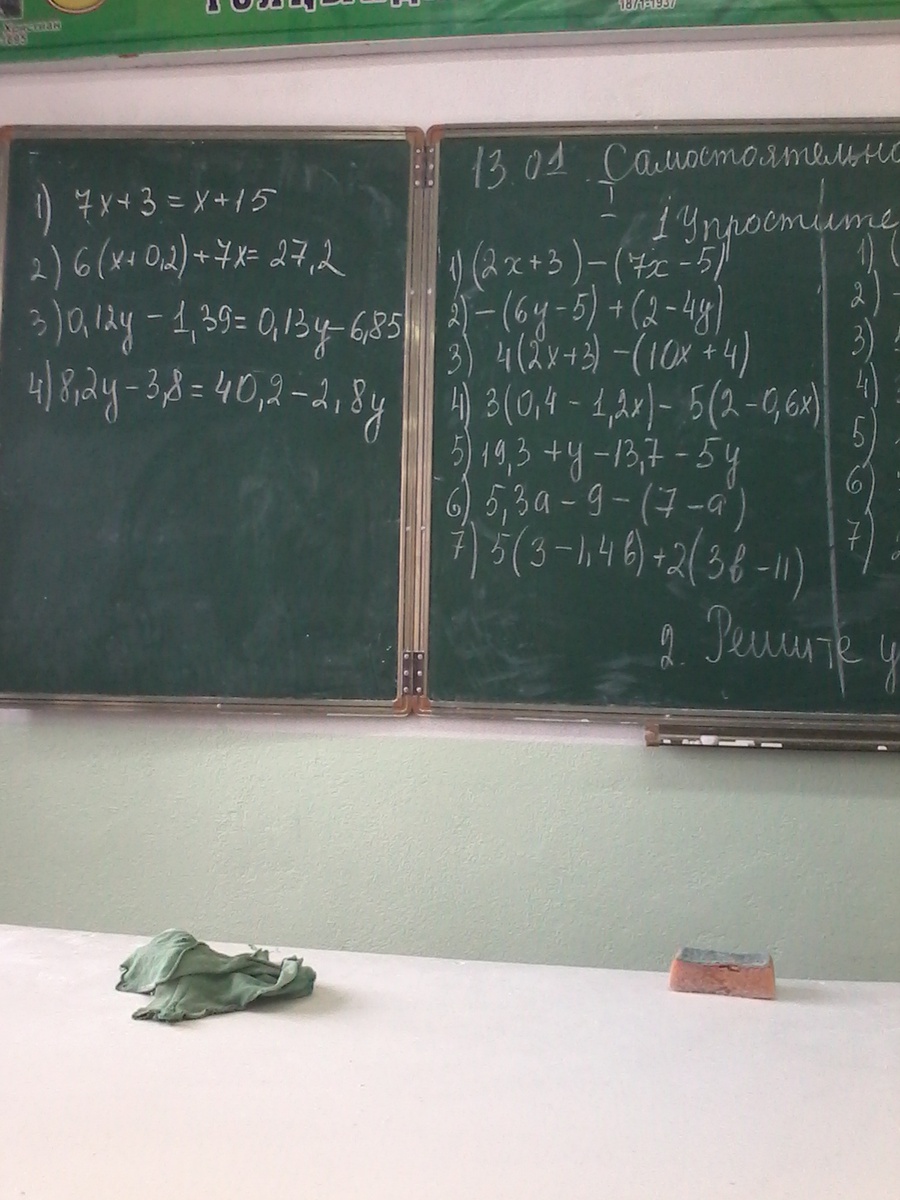 1871-1937
1885
1) 7x+3=x+15
2) 6(x+0,2)+7x=27,2
3) 0,12y-1,39=0,13y-6,85
4) 8,2y-3,8=40,2-2,8y
13.01 Самостоятельно
I
1 Упростите
1) (2x+3)-(7x-5)
2) -(6y-5)+(2-4y)
3) 4(2x+3)-(10x+4)
4) 3(0,4-1,2x)-5(2-0,6x)
5) 19,3+y-13,7-5y
6) 5,3a-9-(7-a)
7) 5(3-1,4в)+2(3в-11)
1) (
2) -
3)
4)
5)
6)
7)
2. Решите у